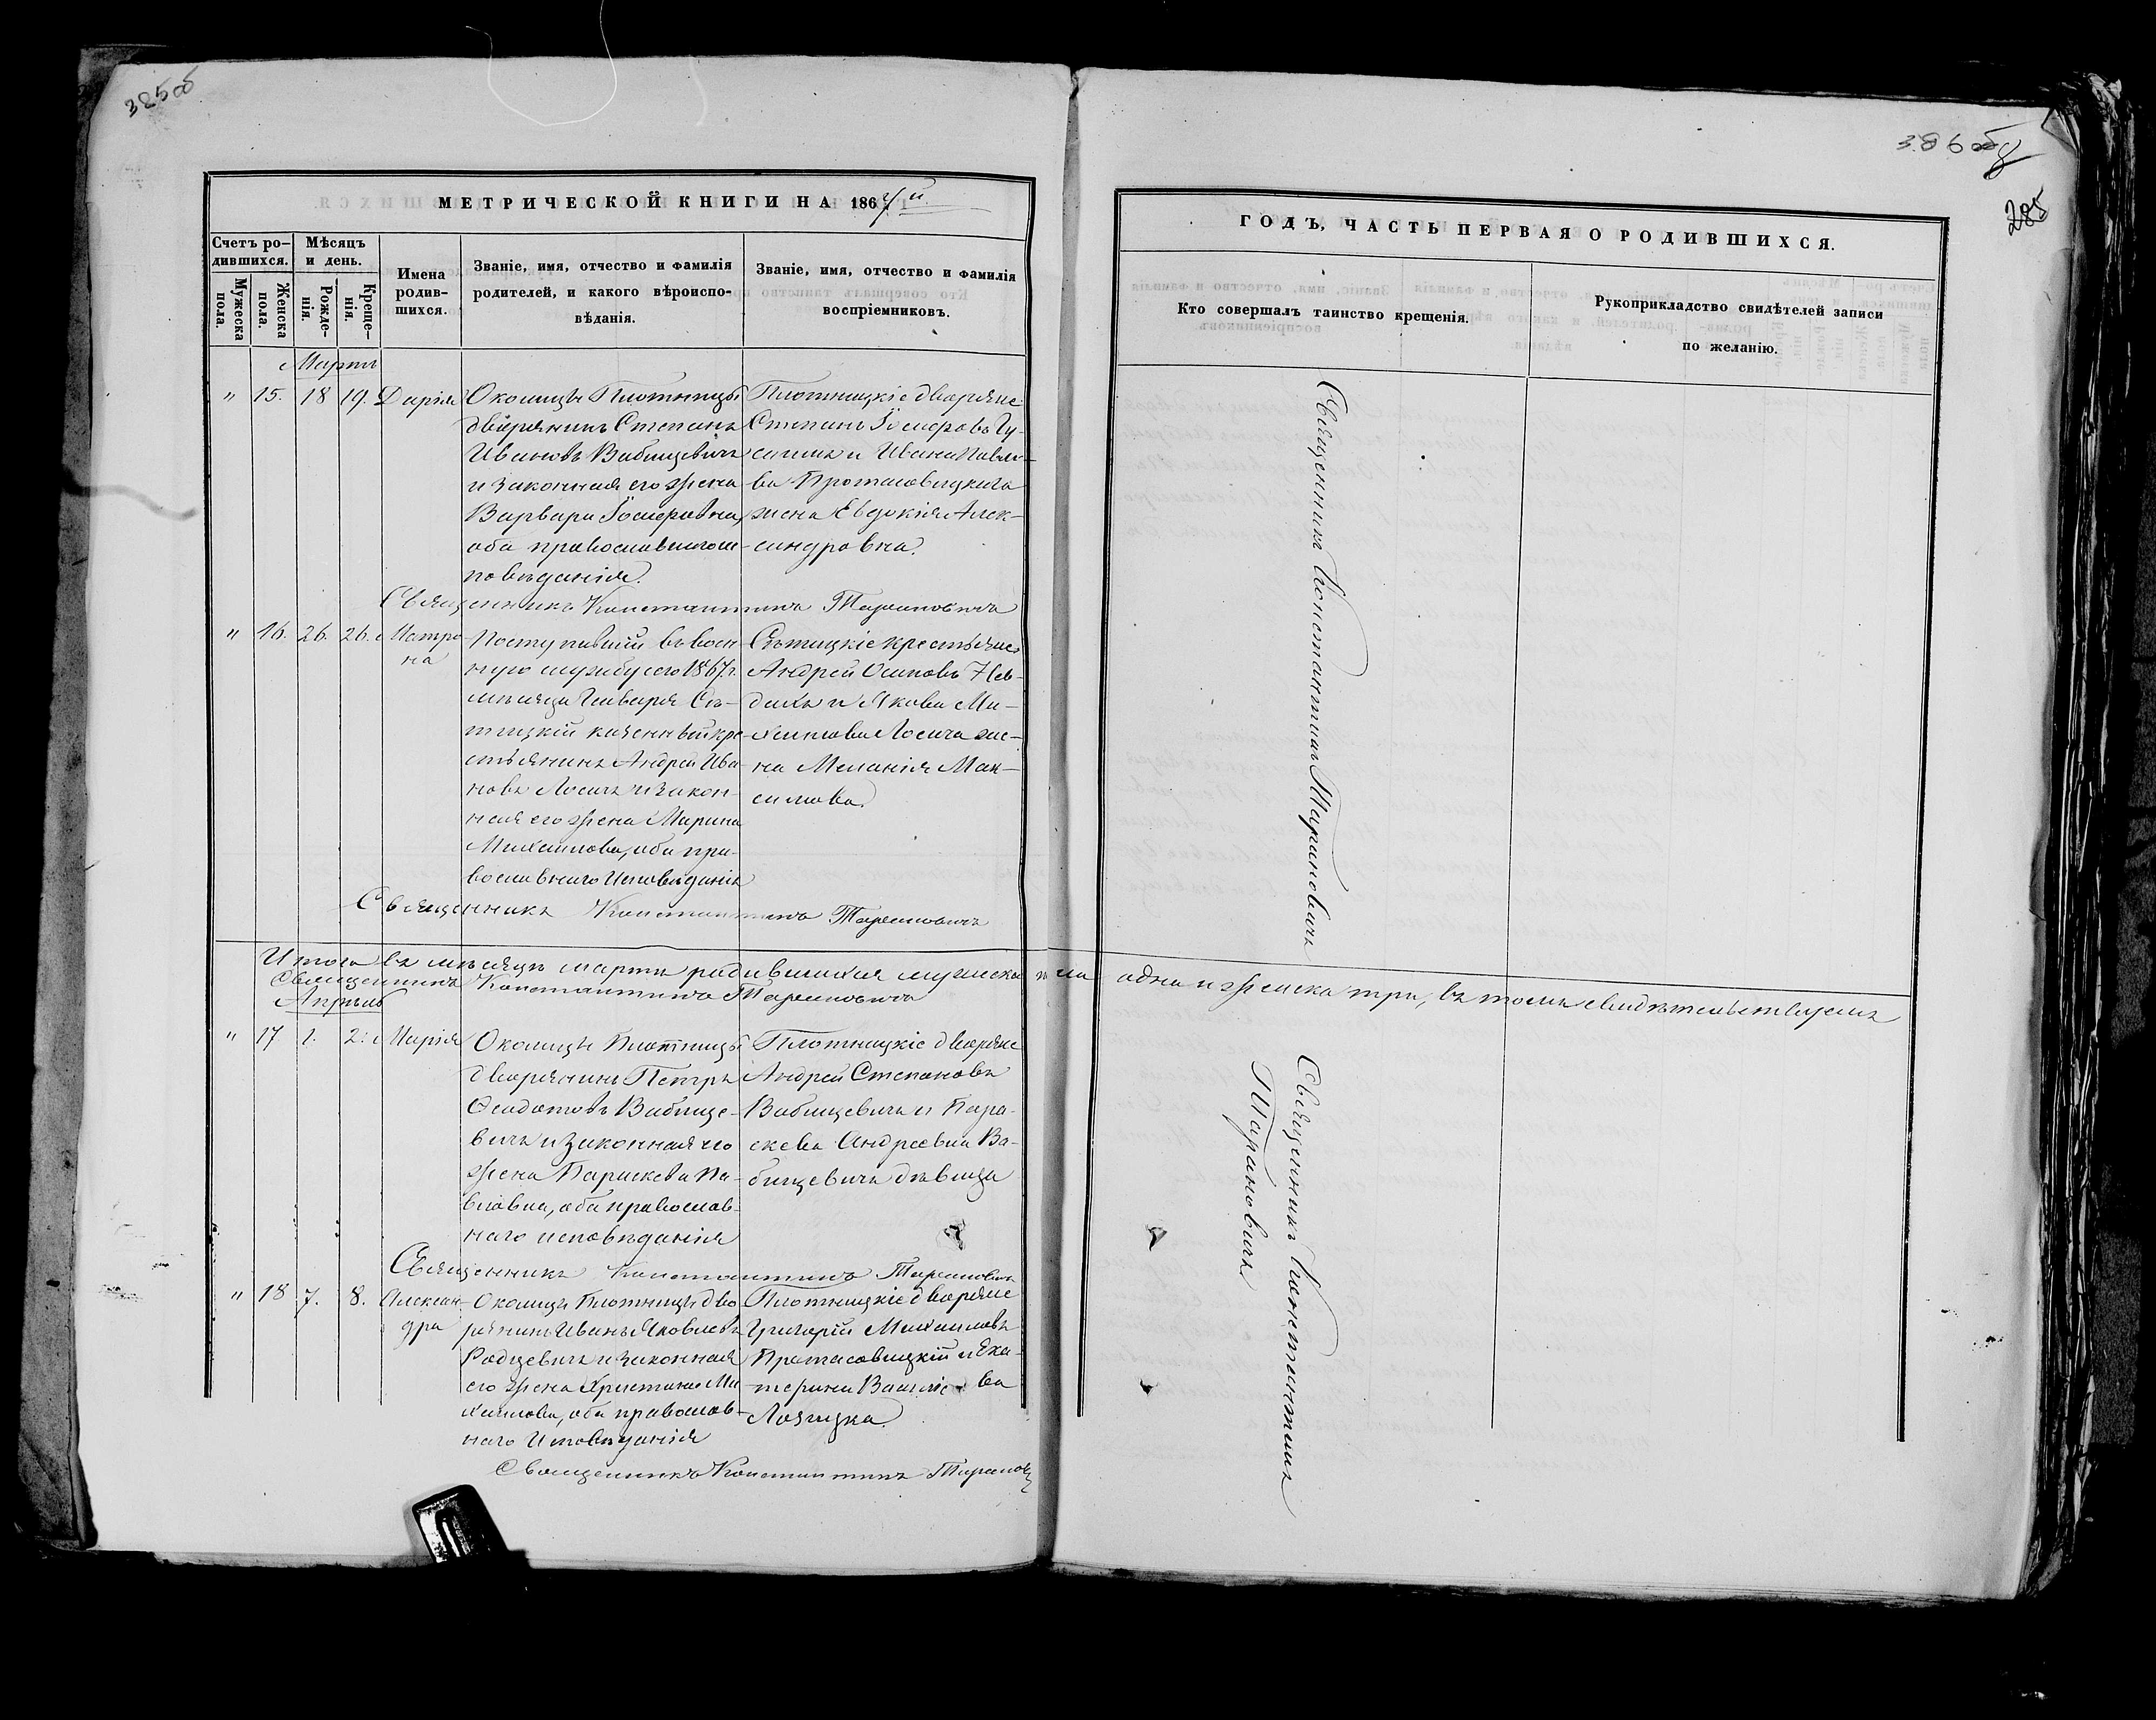 385об
МЕТРИЧЕСКОЙ КНИГИ НА 1867й
Счетъ ро-
дившихся.
Мѣсяцъ
и день.
Мужеска
пола.
Женска
пола.
Рожде-
нія.
Креще-
нія.
Имена
родив-
шихся.
Званіе, имя, отчество и фамилія
родителей, и какого вѣроиспо-
вѣданія.
Званіе, имя, отчество и фамилія
воспріемниковъ.
Мартъ
" 15. 18 19. Дарія
Околицы Плотницы
дворянинъ Степанъ
Ивановъ Вабищевичъ
и законная его жена
Варвара Іосифовна,
оба православнаго ис-
повѣданія.
Плотницкіе дворяне
Степанъ Іосифовъ Гу-
и Ивана Павло-
ва Протасовицкаго
жена Евдокія Алек-
сандровна.
Священникъ Константинъ Тарановичъ
" 16. 26. 26. Матро
на
Поступившій въ воен
ную службу сего 1867 г.
мѣсяца Генваря Съ-
тицкій казенный кре-
стьянинъ Андрей Ива
новъ Лосичъ и закон-
ная его жена Марина
Михаилова, оба пра-
вославнаго исповѣданія
Сътицкіе крестьяне
Андрей Осиповъ Нев-
дахъ и Якова Ми-
хаилова Лосича же-
на Меланія Мак-
симова.
Священникъ Константинъ Тарановичъ
Итого въ мѣсяцѣ мартѣ родившихся мужеска пола одна и женска три, въ томъ свидѣтельствуемъ
Священникъ Константинъ Тарановичъ
Апрѣль
" 17 1. 2. Марія
Околицы Плотницы
дворянинъ Петръ
Ѳеодотовъ Вабище-
вичъ и законная его
жена Параскева Па-
вловна, оба православ-
наго исповѣданія
Плотницкіе дворяне
Андрей Степановъ
Вабищевичъ и Пара-
скева Андреевна Ва-
бищевичъ дѣвица
Священникъ Константинъ Тарановичъ
" 18 7. 8. Алексан-
дра
Околицы Плотницы дво
рянинъ Иванъ Яковлевъ
Родцевичъ и законная
его жена Христина Ми
хаилова, оба православ-
наго исповѣданія
Плотницкіе дворяне
Григорій Михаиловъ
Протасовицкій и Ека-
терина
Лозицка.
Священникъ Константинъ Тарановичъ
386об
285
ГОДЪ, ЧАСТЬ ПЕРВАЯ О РОДИВШИХСЯ.
Кто совершалъ таинство крещенія.
Рукоприкладство свидѣтелей записи
по желанію.
Священникъ Константинъ Тарановичъ
Священникъ Константинъ
Тарановичъ